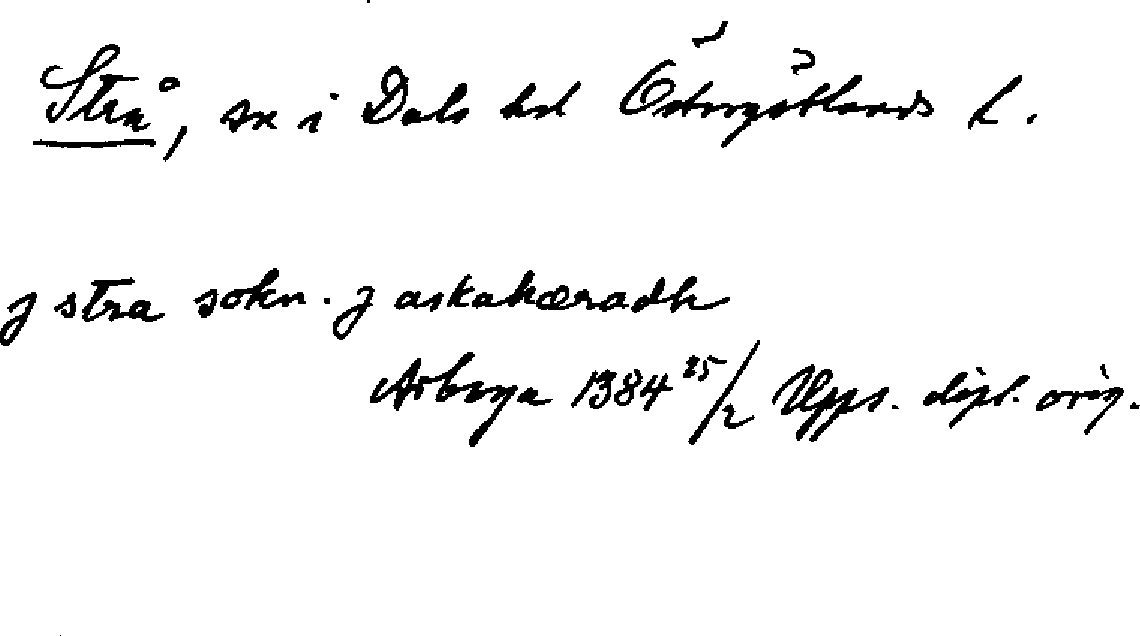 Strå, sn i Dals hd Östergötlands l.
j stra sokn. j askahæradh
Arboga 1384 25/2 Upps. dipl. orig.